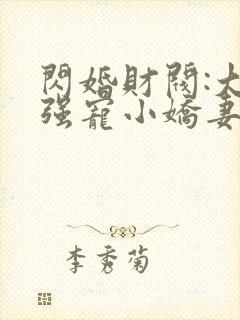 閃婚財閥:大
强寵小嬌妻
李秀菊